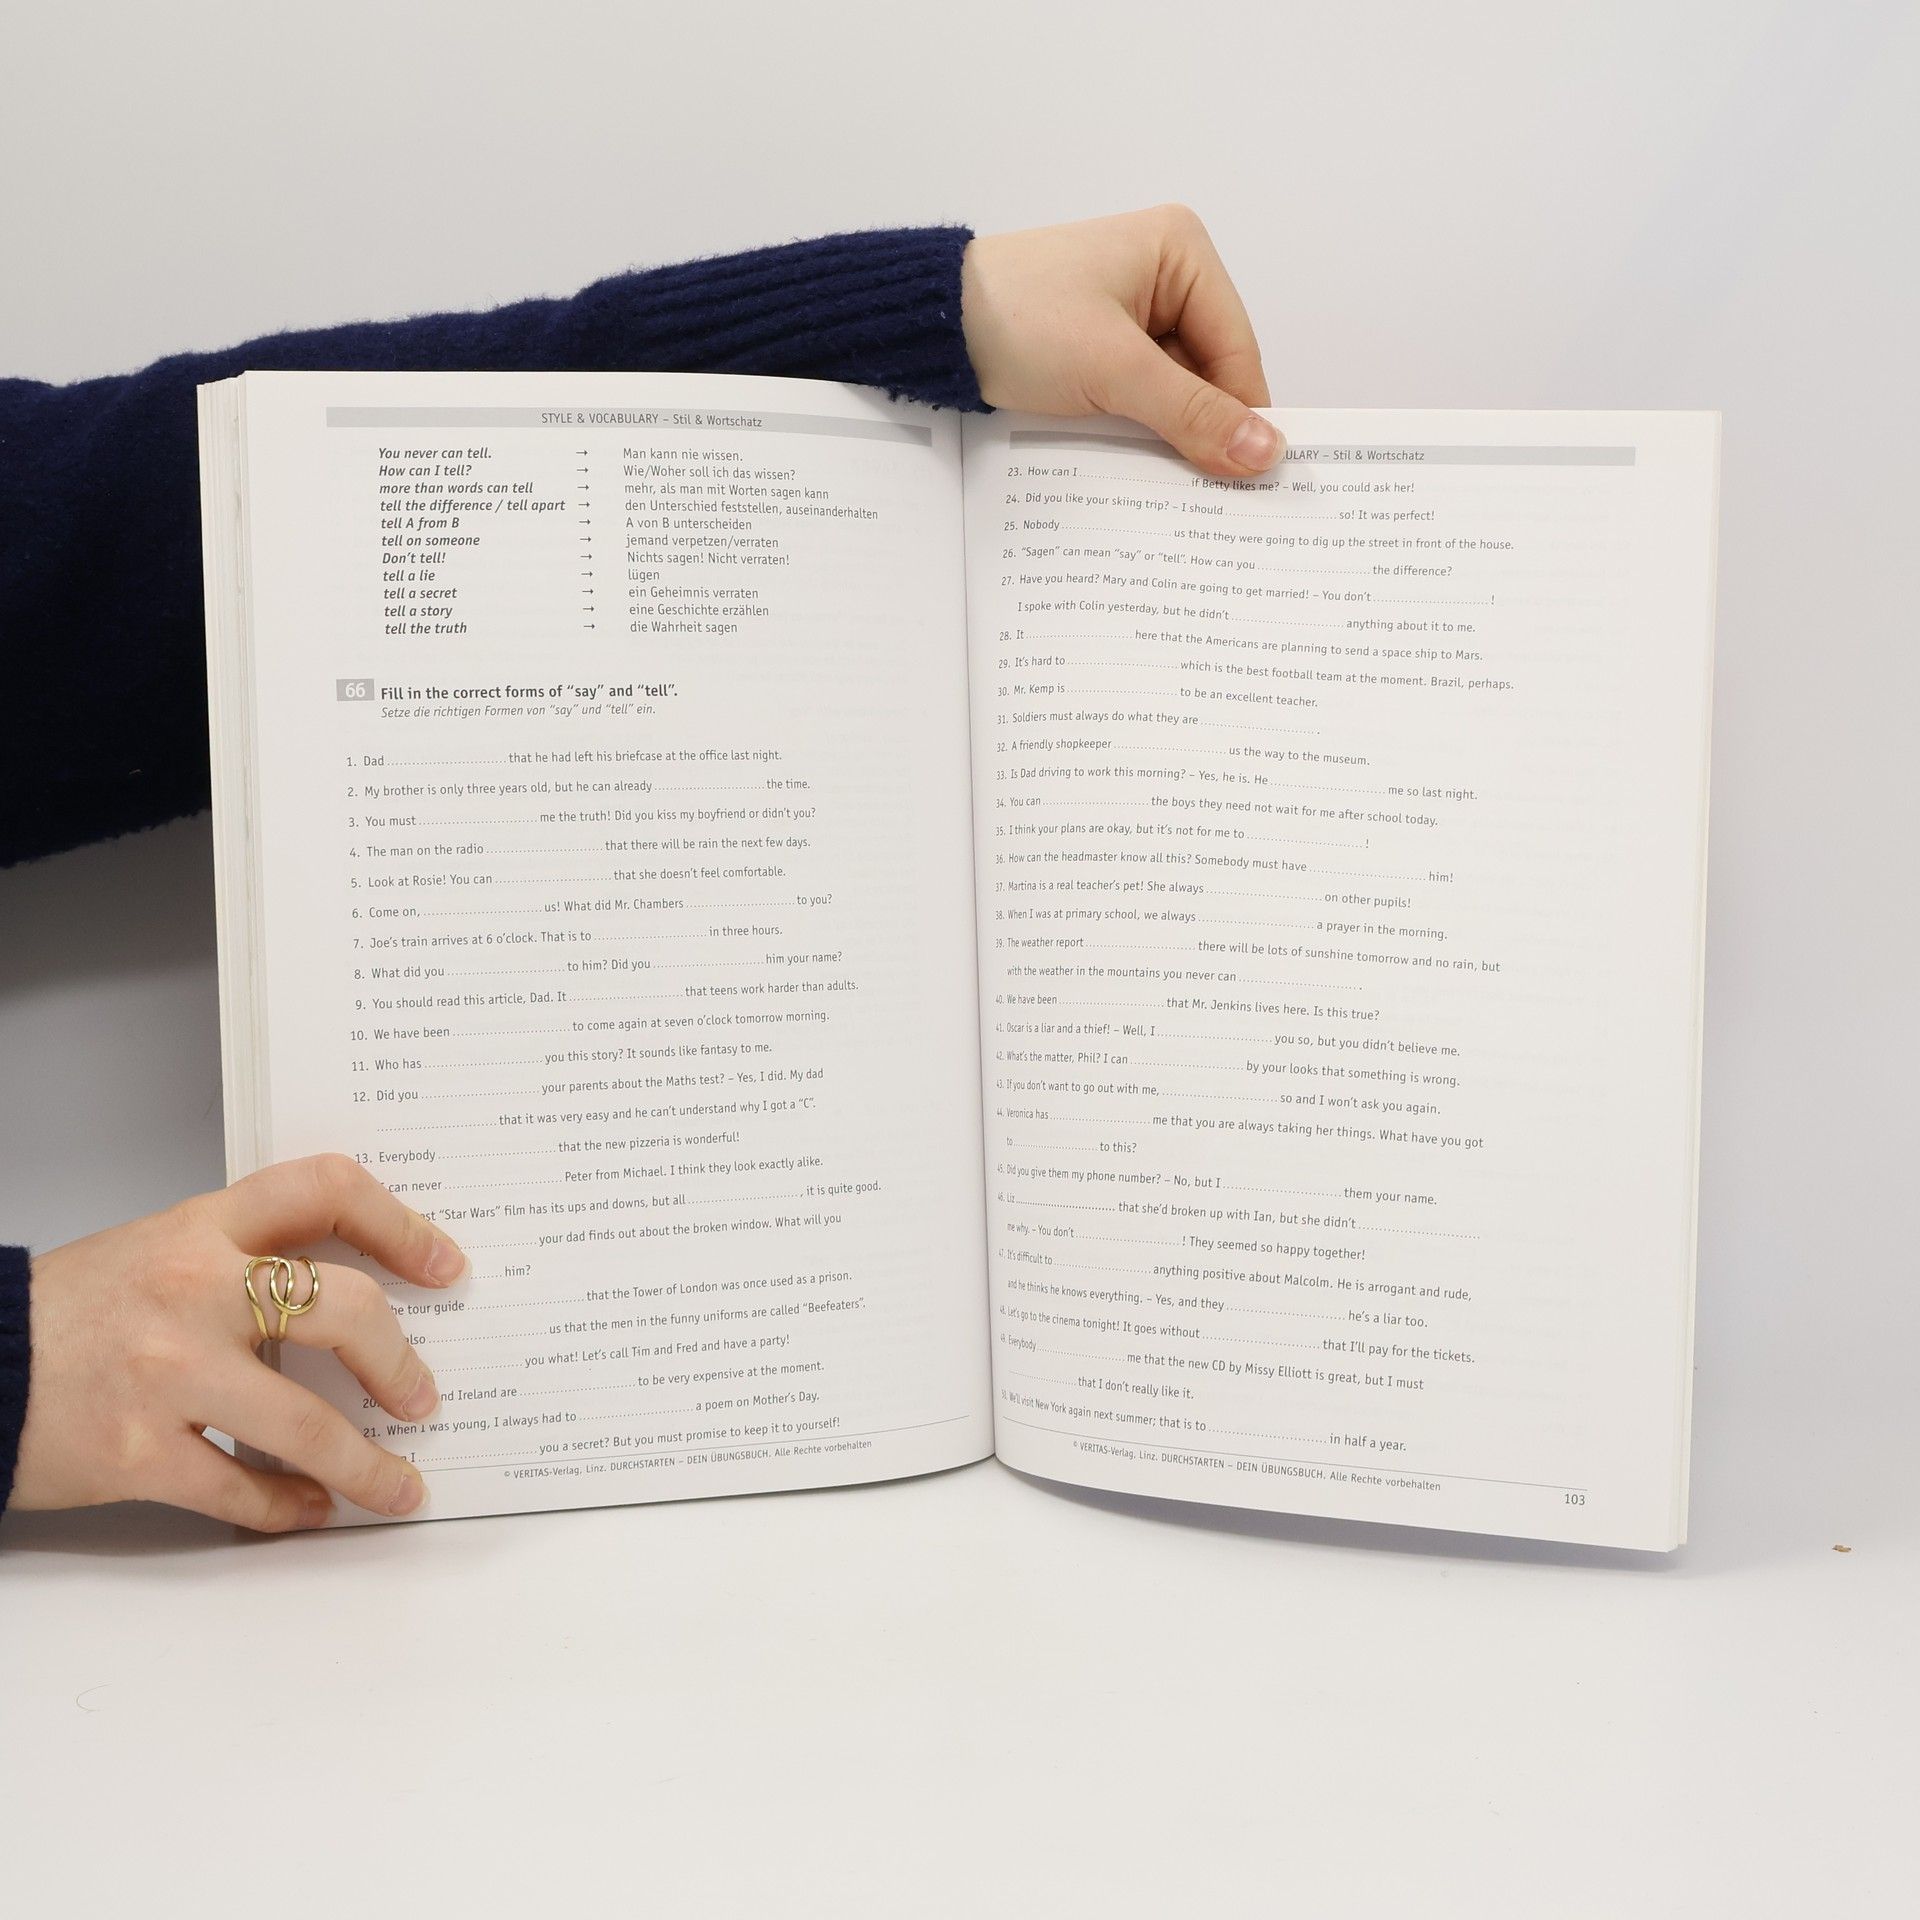 STYLE & VOCABULARY – Stil & Wortschatz
You never can tell. → Man kann nie wissen.
How can I tell? → Wie/Woher soll ich das wissen?
more than words can tell → mehr, als man mit Worten sagen kann
tell the difference / tell apart → den Unterschied feststellen, auseinanderhalten
tell A from B → A von B unterscheiden
tell on someone → jemand verpetzen/verraten
Don't tell! → Nichts sagen! Nicht verraten!
tell a lie → lügen
tell a secret → ein Geheimnis verraten
tell a story → eine Geschichte erzählen
tell the truth → die Wahrheit sagen
66 Fill in the correct forms of “say” and “tell”.
Setze die richtigen Formen von “say” und “tell” ein.
1. Dad .............................. that he had left his briefcase at the office last night.
2. My brother is only three years old, but he can already .............................. the time.
3. You must .............................. me the truth! Did you kiss my boyfriend or didn't you?
4. The man on the radio .............................. that there will be rain the next few days.
5. Look at Rosie! You can .............................. that she doesn't feel comfortable.
6. Come on, .............................. us! What did Mr. Chambers .............................. to you?
7. Joe's train arrives at 6 o'clock. That is to .............................. in three hours.
8. What did you .............................. to him? Did you .............................. him your name?
9. You should read this article, Dad. It .............................. that teens work harder than adults.
10. We have been .............................. to come again at seven o'clock tomorrow morning.
11. Who has .............................. you this story? It sounds like fantasy to me.
12. Did you .............................. your parents about the Maths test? – Yes, I did. My dad
.............................. that it was very easy and he can't understand why I got a “C”.
13. Everybody .............................. that the new pizzeria is wonderful!
can never .............................. Peter from Michael. I think they look exactly alike.
“Star Wars” film has its ups and downs, but all .............................. , it is quite good.
.............................. your dad finds out about the broken window. What will you
.............................. him?
tour guide .............................. that the Tower of London was once used as a prison.
also .............................. us that the men in the funny uniforms are called “Beefeaters”.
.............................. you what! Let's call Tim and Fred and have a party!
20. Ireland are .............................. to be very expensive at the moment.
21. When I was young, I always had to .............................. a poem on Mother's Day.
I .............................. you a secret? But you must promise to keep it to yourself!
© VERITAS-Verlag, Linz. DURCHSTARTEN – DEIN ÜBUNGSBUCH. Alle Rechte vorbehalten
– Stil & Wortschatz
23. How can I .............................. if Betty likes me? – Well, you could ask her!
24. Did you like your skiing trip? – I should .............................. so! It was perfect!
25. Nobody .............................. us that they were going to dig up the street in front of the house.
26. “Sagen” can mean “say” or “tell”. How can you .............................. the difference?
27. Have you heard? Mary and Colin are going to get married! – You don't .............................. !
I spoke with Colin yesterday, but he didn't .............................. anything about it to me.
28. It .............................. here that the Americans are planning to send a space ship to Mars.
29. It's hard to .............................. which is the best football team at the moment. Brazil, perhaps.
30. Mr. Kemp is .............................. to be an excellent teacher.
31. Soldiers must always do what they are .............................. .
32. A friendly shopkeeper .............................. us the way to the museum.
33. Is Dad driving to work this morning? – Yes, he is. He .............................. me so last night.
34. You can .............................. the boys they need not wait for me after school today.
35. I think your plans are okay, but it's not for me to .............................. !
36. How can the headmaster know all this? Somebody must have .............................. him!
37. Martina is a real teacher's pet! She always .............................. on other pupils!
38. When I was at primary school, we always .............................. a prayer in the morning.
39. The weather report .............................. there will be lots of sunshine tomorrow and no rain, but
with the weather in the mountains you never can .............................. .
40. We have been .............................. that Mr. Jenkins lives here. Is this true?
41. Oscar is a liar and a thief! – Well, I .............................. you so, but you didn't believe me.
42. What's the matter, Phil? I can .............................. by your looks that something is wrong.
43. If you don't want to go out with me, .............................. so and I won't ask you again.
44. Veronica has .............................. me that you are always taking her things. What have you got
to .............................. to this?
45. Did you give them my phone number? – No, but I .............................. them your name.
46. Liz .............................. that she'd broken up with Ian, but she didn't ..............................
me why. – You don't .............................. ! They seemed so happy together!
47. It's difficult to .............................. anything positive about Malcolm. He is arrogant and rude,
and he thinks he knows everything. – Yes, and they .............................. he's a liar too.
48. Let's go to the cinema tonight! It goes without .............................. that I'll pay for the tickets.
49. Everybody .............................. me that the new CD by Missy Elliott is great, but I must
.............................. that I don't really like it.
50. We'll visit New York again next summer; that is to .............................. in half a year.
© VERITAS-Verlag, Linz. DURCHSTARTEN – DEIN ÜBUNGSBUCH. Alle Rechte vorbehalten
103